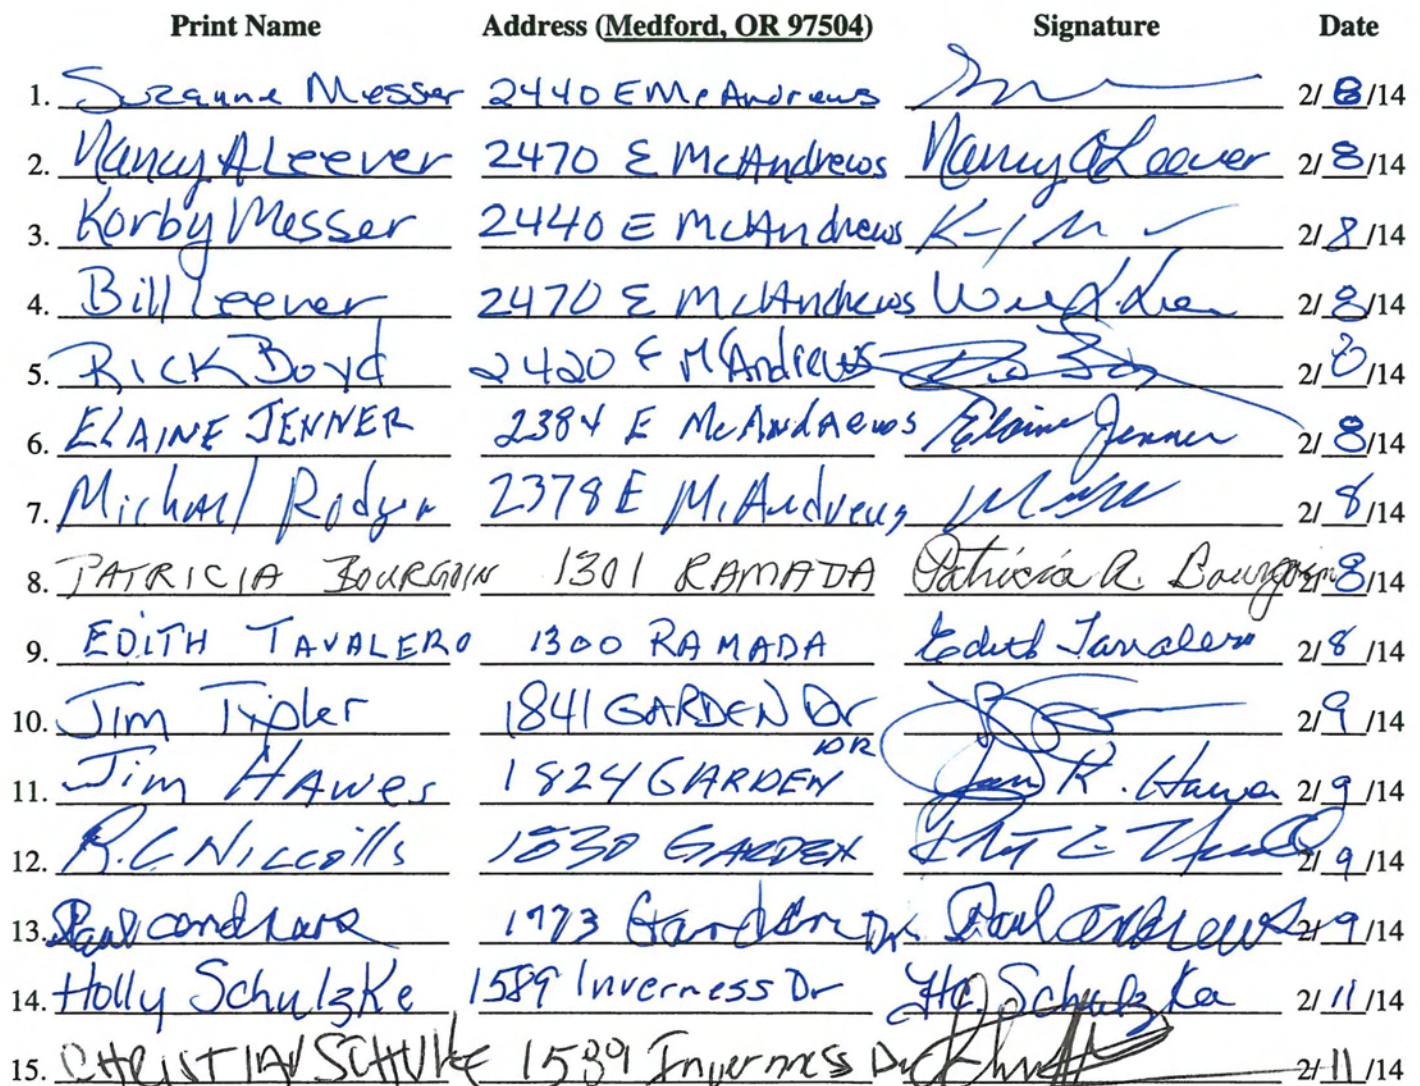 Print Name Address (Medford, OR 97504) Signature Date
1. Suzanne Messer 2440 E McAndrews 2/8/14
2. Nancy A Leever 2470 E McAndrews Nancy A Leever 2/8/14
3. Korby Messer 2440 E McAndrews 2/8/14
4. Bill Leever 2470 E McAndrews 2/8/14
5. Rick Boyd 2420 E McAndrews 2/8/14
6. ELAINE JENNER 2384 E McAndrews Elaine Jenner 2/8/14
7. Michael Rodger 2378 E McAndrews 2/8/14
8. PATRICIA BOURGOIN 1301 RAMADA Patricia A. Bourgoin 2/8/14
9. EDITH TAVALERO 1300 RAMADA Edith Tavalero 2/8/14
10. Jim Tipler 1841 GARDEN Dr 2/9/14
11. Jim HAWES 1824 GARDEN DR Jim R. Hawes 2/9/14
12. R.C. Niccolls 1830 GARDEN 2/9/14
13. Paul 1773 Garden Dr. Paul 2/9/14
14. Holly Schulzke 1589 Inverness Dr Schulzke 2/11/14
15. CHRISTIAN SCHULKE 1589 Inverness Dr 2/11/14